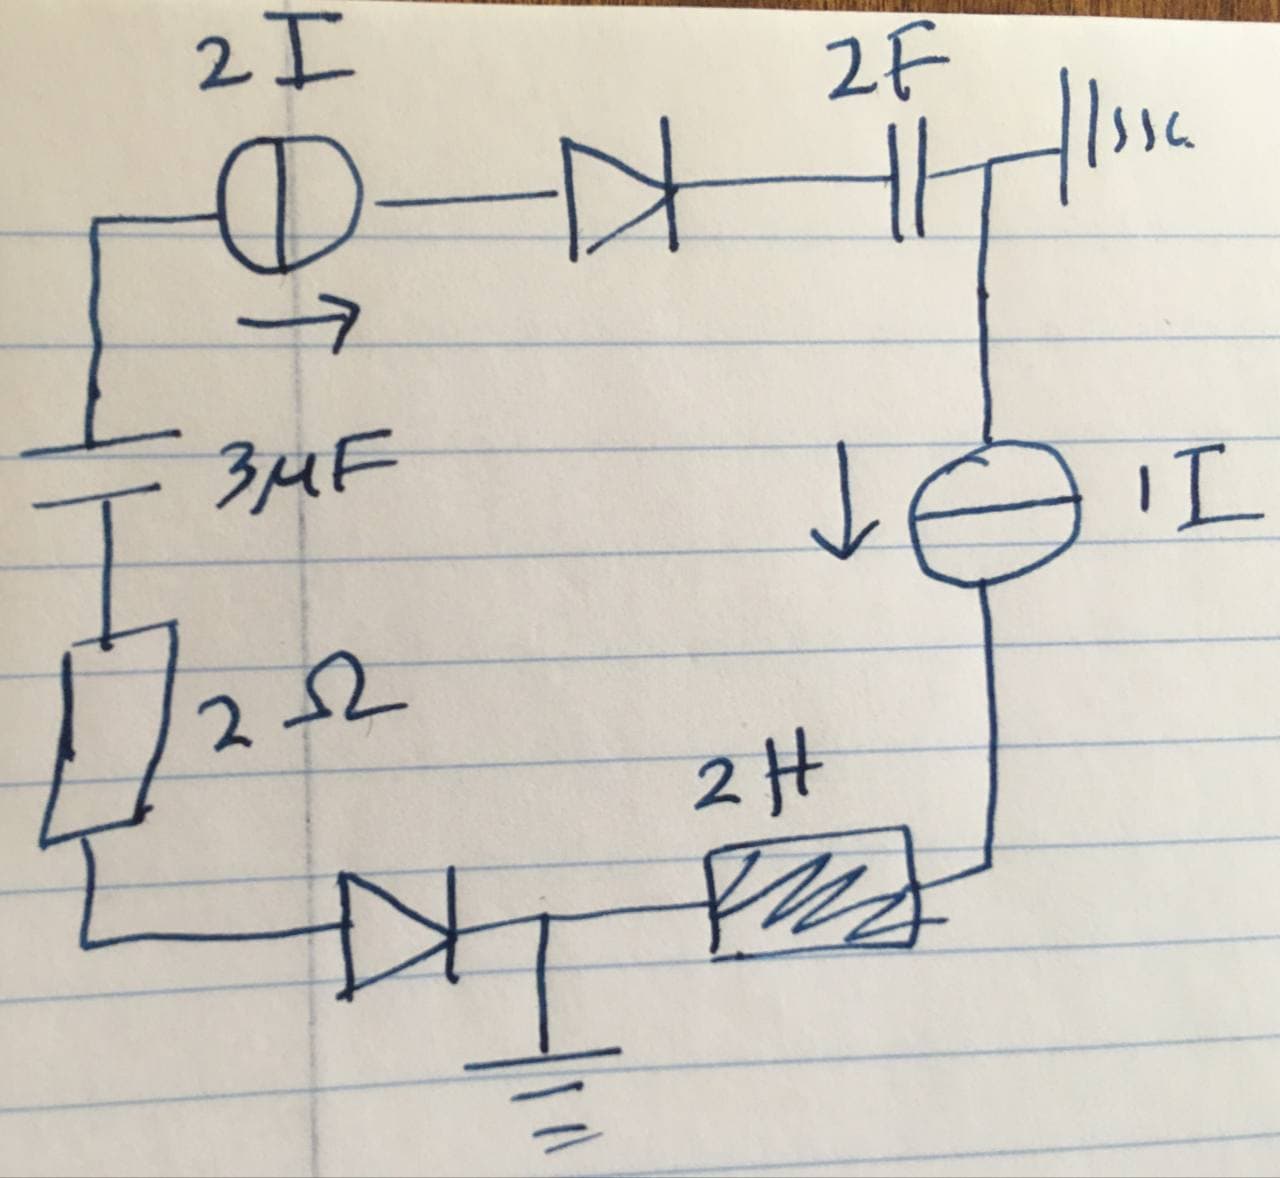 2 I
2F
3µF
1 I
2 Ω
2 H